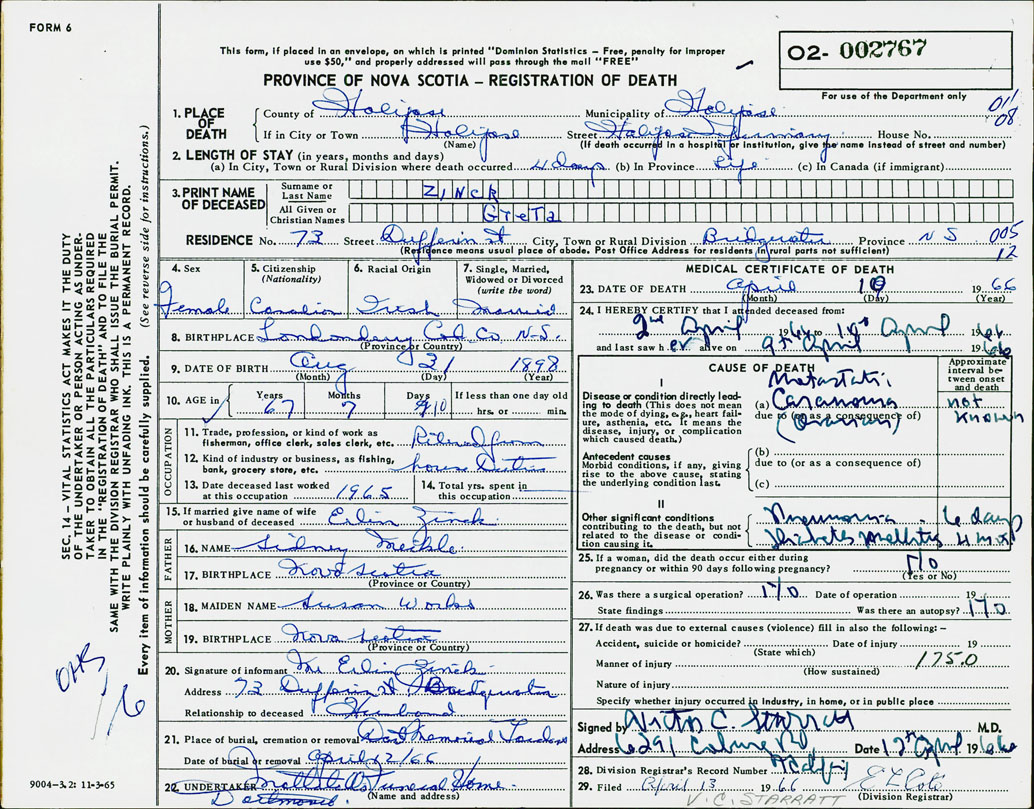 FORM 6
This form, if placed in an envelope, on which is printed "Dominion Statistics – Free, penalty for improper
use $50," and properly addressed will pass through the mail "FREE"
PROVINCE OF NOVA SCOTIA – REGISTRATION OF DEATH
O2- 002767
For use of the Department only
011
08
1. PLACE OF DEATH
County of Halifax Municipality of Halifax
If in City or Town Halifax Street Halifax Infirmary House No.
(Name) (If death occurred in a hospital or institution, give the name instead of street and number)
2. LENGTH OF STAY (in years, months and days)
(a) In City, Town or Rural Division where death occurred 4 days (b) In Province Life (c) In Canada (if immigrant)
3. PRINT NAME OF DECEASED
Surname or Last Name ZINCK
All Given or Christian Names GreTa
RESIDENCE No. 73 Street Dufferin St City, Town or Rural Division Bridgewater Province N S 005
(Residence means usual place of abode. Post Office Address for residents in rural parts not sufficient) 12
4. Sex
Female
5. Citizenship (Nationality)
Canadian
6. Racial Origin
Irish
7. Single, Married, Widowed or Divorced (write the word)
Married
8. BIRTHPLACE Londonderry Col. Co. N.S.
(Province or Country)
9. DATE OF BIRTH Aug 31 1898
(Month) (Day) (Year)
10. AGE in
Years 67 Months 7 Days 10 If less than one day old
hrs. or min.
OCCUPATION
11. Trade, profession, or kind of work as fisherman, office clerk, sales clerk, etc. Retired from
12. Kind of industry or business, as fishing, bank, grocery store, etc. house Duties
13. Date deceased last worked at this occupation 1965
14. Total yrs. spent in this occupation
15. If married give name of wife or husband of deceased Erlin Zinck
FATHER
16. NAME Sidney Meikle
17. BIRTHPLACE Nova Scotia
(Province or Country)
MOTHER
18. MAIDEN NAME Susan Works
19. BIRTHPLACE Nova Scotia
(Province or Country)
20. Signature of informant Mr Erlin Zinck
Address 73 Dufferin St. Bridgewater
Relationship to deceased Husband
21. Place of burial, cremation or removal Dart Memorial Gardens
Date of burial or removal April 12/66
22. UNDERTAKER Funeral Home
(Name and address)
9004-3.2: 11-3-65
MEDICAL CERTIFICATE OF DEATH
23. DATE OF DEATH April 10 1966
(Month) (Day) (Year)
24. I HEREBY CERTIFY that I attended deceased from:
2nd April 1966 to 10th April 1966
and last saw her alive on 9th April 1966
CAUSE OF DEATH
Approximate interval between onset and death
I
Disease or condition directly leading to death (This does not mean the mode of dying, e.g., heart failure, asthenia, etc. It means the disease, injury, or complication which caused death.)
Metastatic
(a) Carcinoma not known
due to (or as a consequence of)
(Ovarian)
Antecedent causes
Morbid conditions, if any, giving rise to the above cause, stating the underlying condition last.
(b)
due to (or as a consequence of)
(c)
II
Other significant conditions contributing to the death, but not related to the disease or condition causing it.
Pneumonia 6 days
Diabetes mellitus
25. If a woman, did the death occur either during pregnancy or within 90 days following pregnancy? No
(Yes or No)
26. Was there a surgical operation? No Date of operation 19
State findings Was there an autopsy? No
27. If death was due to external causes (violence) fill in also the following:–
Accident, suicide or homicide? Date of injury 19
(State which)
Manner of injury 1750
(How sustained)
Nature of injury
Specify whether injury occurred in Industry, in home, or in public place
Signed by Victor C. Starratt M.D.
Address 6291 Coburg Rd Date 12 April 1966
Halifax
28. Division Registrar's Record Number
29. Filed April 13 1966
(Division Registrar)
V. C. STARRATT
SEC. 14 – VITAL STATISTICS ACT MAKES IT THE DUTY
OF THE UNDERTAKER OR PERSON ACTING AS UNDER-
TAKER TO OBTAIN ALL THE PARTICULARS REQUIRED
IN THE "REGISTRATION OF DEATH" AND TO FILE THE
SAME WITH THE DIVISION REGISTRAR WHO SHALL ISSUE THE BURIAL PERMIT.
WRITE PLAINLY WITH UNFADING INK. THIS IS A PERMANENT RECORD.
Every item of information should be carefully supplied. (See reverse side for instructions.)